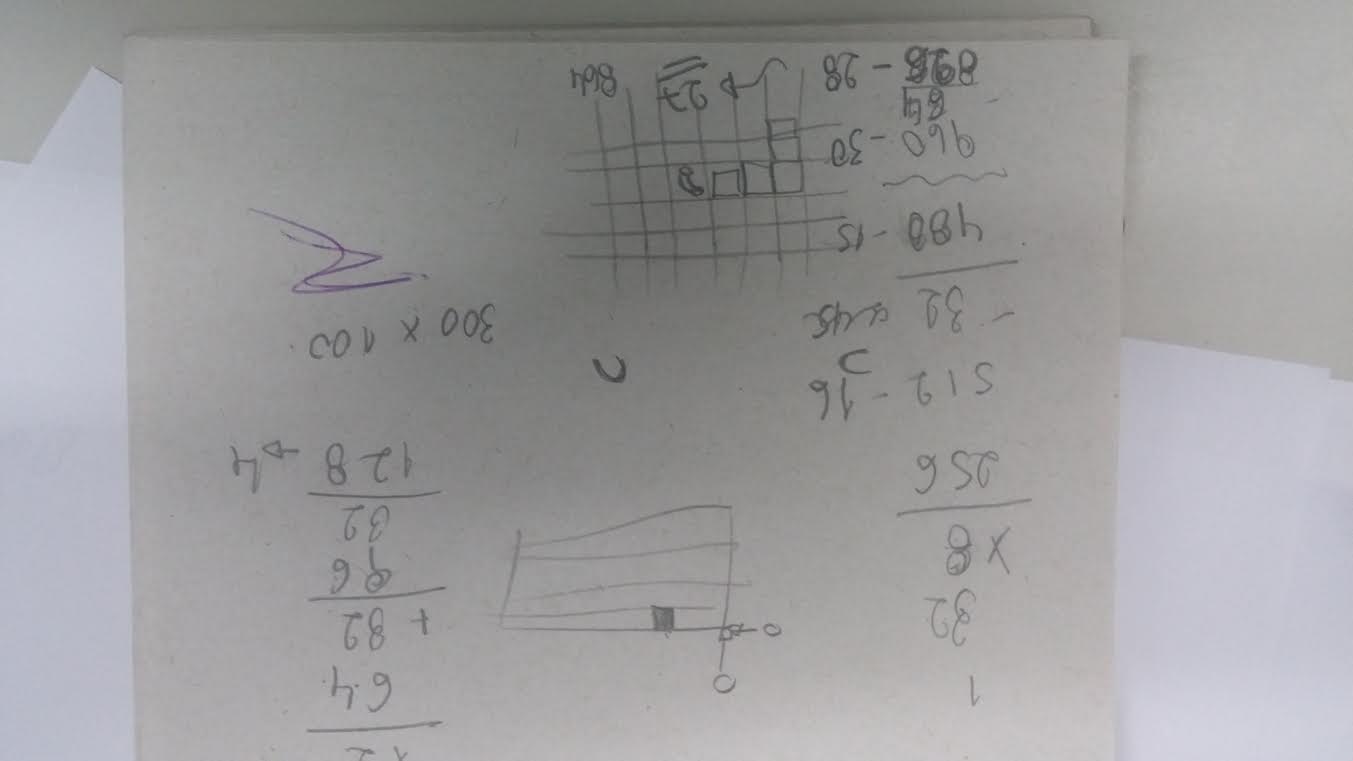 1
32
x 8
256
512 - 16
- 32
480 - 15
960 - 30
- 64
896 - 28
0
0
8
27
864
64
+ 32
96
32
128 → 4
300 x 100